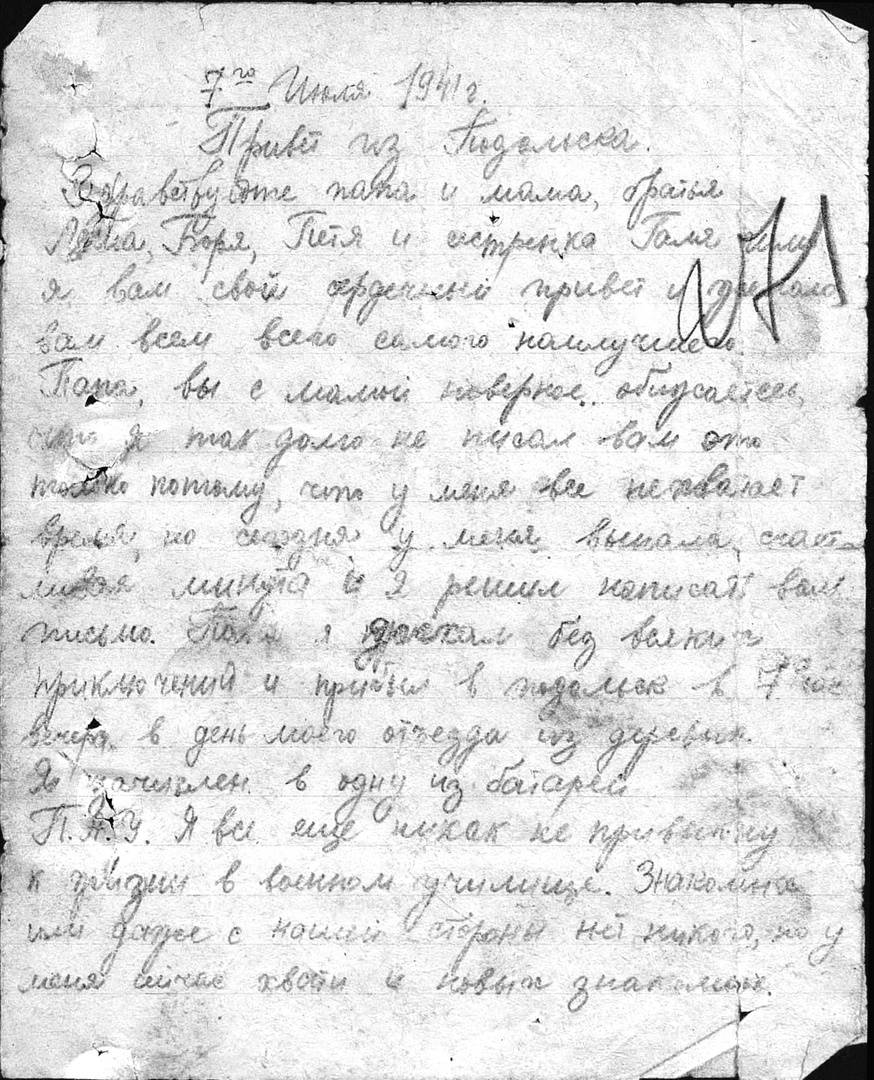 7го Июля 1941 г.
Привет из Подольска.
Здравствуйте папа и мама, братья
Лёша, Боря, Петя и сестренка Галя шлю
я вам свой сердечный привет и желаю
вам всем всего самого наилучшего.
Папа, вы с мамой наверное обижаетесь,
что я так долго не писал вам это
только потому, что у меня все нехватает
время, но сегодня у меня выпала счаст-
ливая минута и я решил написать вам
письмо. Папа я доехал без всяких
приключений и прибыл в подольск в 7 час
вечера в день моего отъезда из деревни.
Я зачислен в одну из батарей
П.А.У. Я все еще никак не привыкну
к жизни в военном училище. Знакомых
или даже с нашей стороны нет никого, но у
меня сичас хвати и новых знакомых.